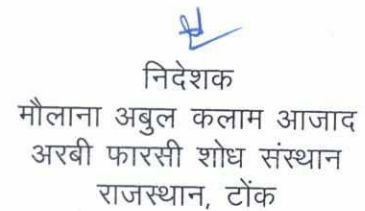 निदेशक
मौलाना अबुल कलाम आजाद
अरबी फारसी शोध संस्थान
राजस्थान, टोंक